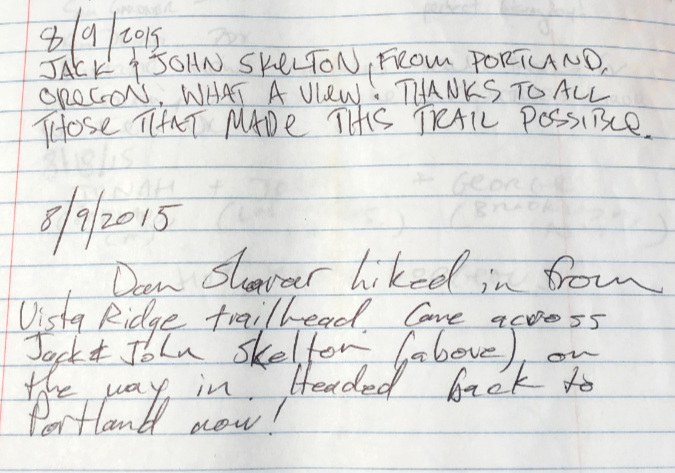 8/9/2015
JACK & JOHN SKELTON, FROM PORTLAND,
OREGON. WHAT A VIEW! THANKS TO ALL
THOSE THAT MADE THIS TRAIL POSSIBLE.
8/9/2015
Dan hiked in from
Vista Ridge trailhead. Came across
Jack & John Skelton (above) on
the way in. Headed back to
Portland now!